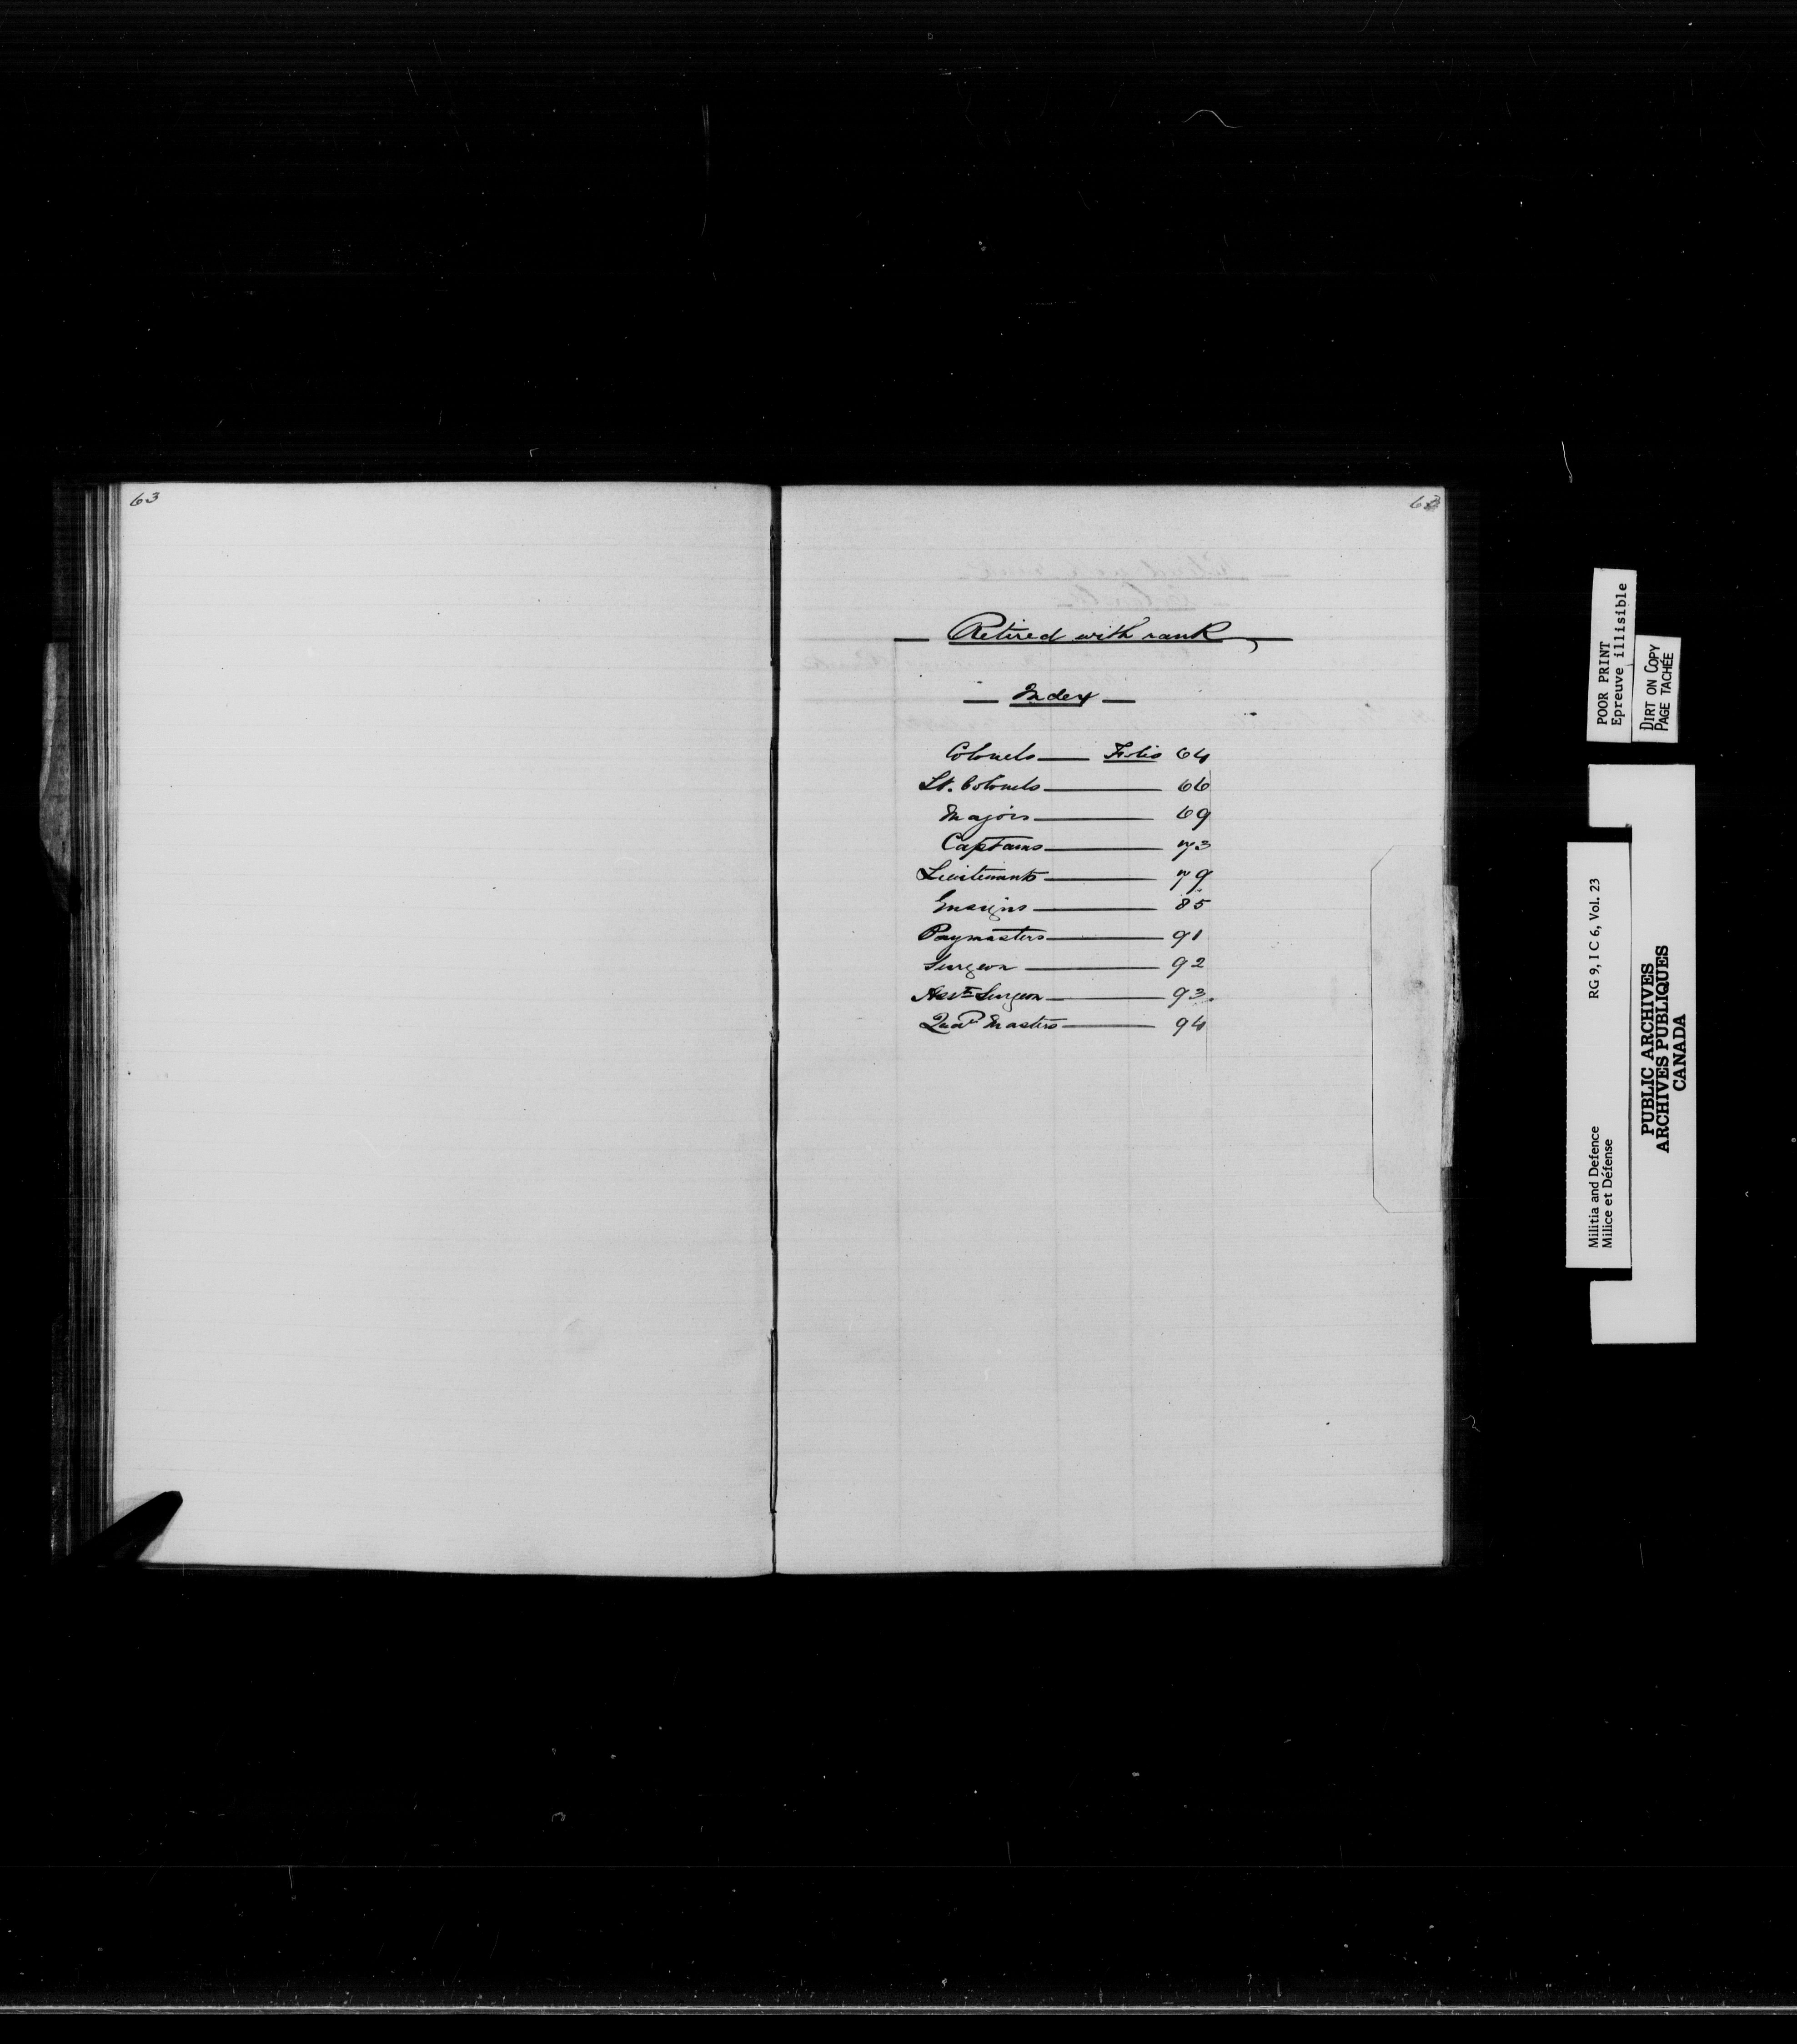 63
63
Retired with rank
Index
Colonels Folio 64
Lt. Colonels 66
Majors 69
Captains 73
Lieutenants 79
Ensigns 85
Paymasters 91
Surgeon 92
Asst Surgeon 93
Quar Masters 94
POOR PRINT
Epreuve illisible
DIRT ON COPY
PAGE TACHÉE
Militia and Defence RG 9, I C 6, Vol. 23
Milice et Défense
PUBLIC ARCHIVES
ARCHIVES PUBLIQUES
CANADA